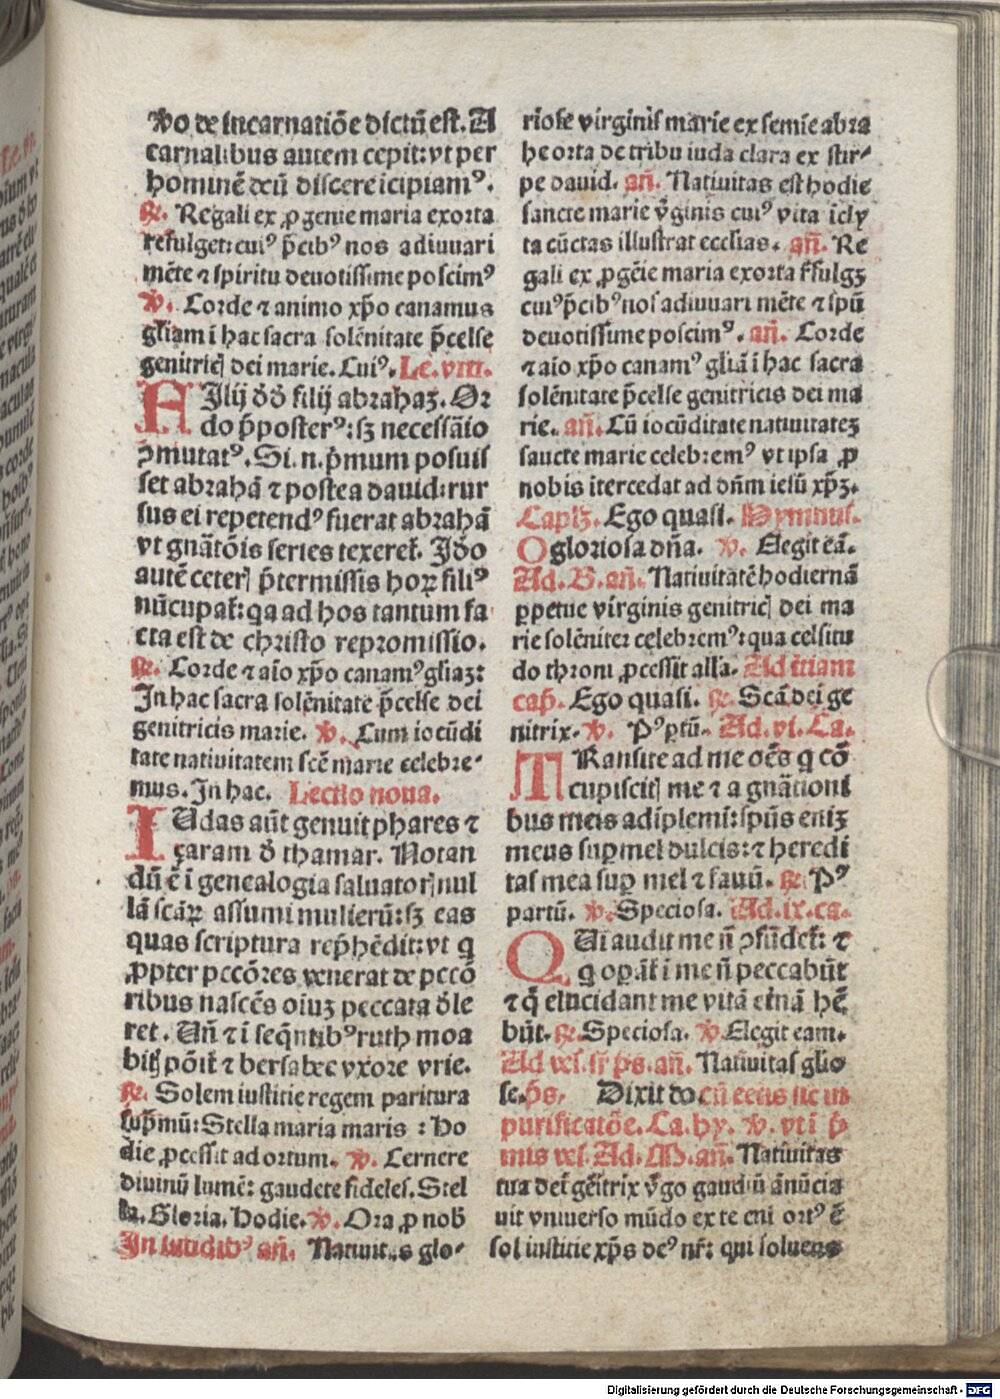 vbo de incarnatiõe dictũ est. A
carnalibus autem cepit: vt per
hominẽ deũ discere icipiamꝰ.
℟. Regali ex ꝓgenie maria exorta
refulget: cuiꝰ p̃cibꝰ nos adiuuari
mẽte ⁊ spiritu deuotissime poscimꝰ
℣. Corde ⁊ animo xp̃o canamus
gl̃iam ĩ hac sacra solẽnitate p̃celse
genitricꝭ dei marie. Cuiꝰ. Le. viii.
FIlij dd̃ filij abrahaꝫ. Or
do p̃posterꝰ: sꝫ necessãio
p̃mutatꝰ. Si. n. p̃mum posuis
set abrahã ⁊ postea dauid: rur
sus ei repetendꝰ fuerat abrahã
vt gnãtõis series texeret̃. Ido
autẽ ceterꝭ p̃termissis hoꝝ filiꝰ
nũcupat̃: qa ad hos tantum fa
cta est de christo repromissio.
℟. Corde ⁊ aĩo xp̃o canamꝰ gliaꝫ:
In hac sacra solẽnitate p̃celse dei
genitricis marie. ℣. Cum iocũdi
tate natiuitatem scẽ marie celebre-
mus. In hac. Lectio nona.
IUdas aũt genuit phares ⁊
zaram d̃ thamar. Notan
dũ ẽ ĩ genealogia saluatorꝭ nul
lã scãꝝ assumi mulierũ: sꝫ eas
quas scriptura rep̃hẽdit: vt q
ꝓpter pccõres venerat de pccõ
ribus nascẽs oĩuꝫ peccata dele
ret. Uñ ⁊ ĩ seq̃ntibꝰ ruth moa
bitꝭ põit̃ ⁊ bersabee vxore vrie.
℟. Solem iustitie regem paritura
sup̃mũ: Stella maria maris: ho
die ꝓcessit ad ortum. ℣. Cernere
diuinũ lumẽ: gaudete fideles. Stel
la. Gloria. Hodie. ℣. Ora ꝓ nob̃
In laudibꝰ añ. Natiuitas glo-
riose virginis marie ex semie abra
he orta de tribu iuda clara ex stir-
pe dauid. añ. Natiuitas est hodie
sancte marie ṽginis cuiꝰ vita ĩcly
ta cũctas illustrat ecclias. añ. Re
gali ex ꝓgẽie maria exorta r̃fulgꝫ
cuiꝰ p̃cibꝰ nos adiuuari mẽte ⁊ spũ
deuotissime poscimꝰ. añ. Corde
⁊ aĩo xp̃o canamꝰ gliã ĩ hac sacra
solẽnitate p̃celse genitricis dei ma
rie. añ. Cũ iocũditate natiuitateꝫ
sancte marie celebremꝰ vt ipsa ꝓ
nobis ĩtercedat ad dñm iesũ xp̃ꝫ.
Capl̃ꝫ. Ego quasi. Hymnus.
O gloriosa dña. ℣. Elegit eã.
Ad. B. añ. Natiuitatẽ hodiernã
ꝑpetue virginis genitricꝭ dei ma
rie solẽniter celebremꝰ: qua celsitu
do throni ꝓcessit alla. Ad t̃tiam
cap̃. Ego quasi. ℟. Scã dei ge
nitrix. ℣. Pꝰ ꝑtũ. Ad. vi. Ca.
TRansite ad me oẽs q cõ
cupiscitꝭ me ⁊ a gnãtioni
bus meis adiplemĩ: spũs eniꝫ
meus suꝑ mel dulcis: ⁊ heredi
tas mea suꝑ mel ⁊ fauũ. ℟. Pꝰ
partũ. ℣. Speciosa. Ad. ix. ca.
QUi audit me ñ ꝯfũdet̃: ⁊
q oꝑãt̃ ĩ me ñ peccabũt
⁊ q̃ elucidant me vitã et̃nã hẽ
bũt. ℟. Speciosa. ℣. Elegit eam.
Ad ves. sr̃ ps. añ. Natiuitas glio
se. p̃s. Dixit do cũ ceteris sic in
purificatõe. Ca. hy. ℣. vti p̃
mis ves. Ad. M. añ. Natiuitas
tua dei gẽitrix ṽgo gaudiũ ãnũcia
uit vniuerso mũdo ex te eni ortꝰ ẽ
sol iustitie xp̃s deꝰ nr̃: qui soluens
Digitalisierung gefördert durch die Deutsche Forschungsgemeinschaft - DFG